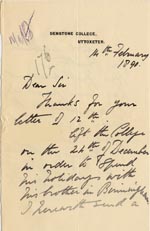 DENSTONE COLLEGE,
UTTOXETER.
14th February
1890.
Dear Sir
Thanks for your
letter of 12th.
left the College
on the 24th of December
in order to spend
his holidays with
his brother in Birmingham
I herewith send a